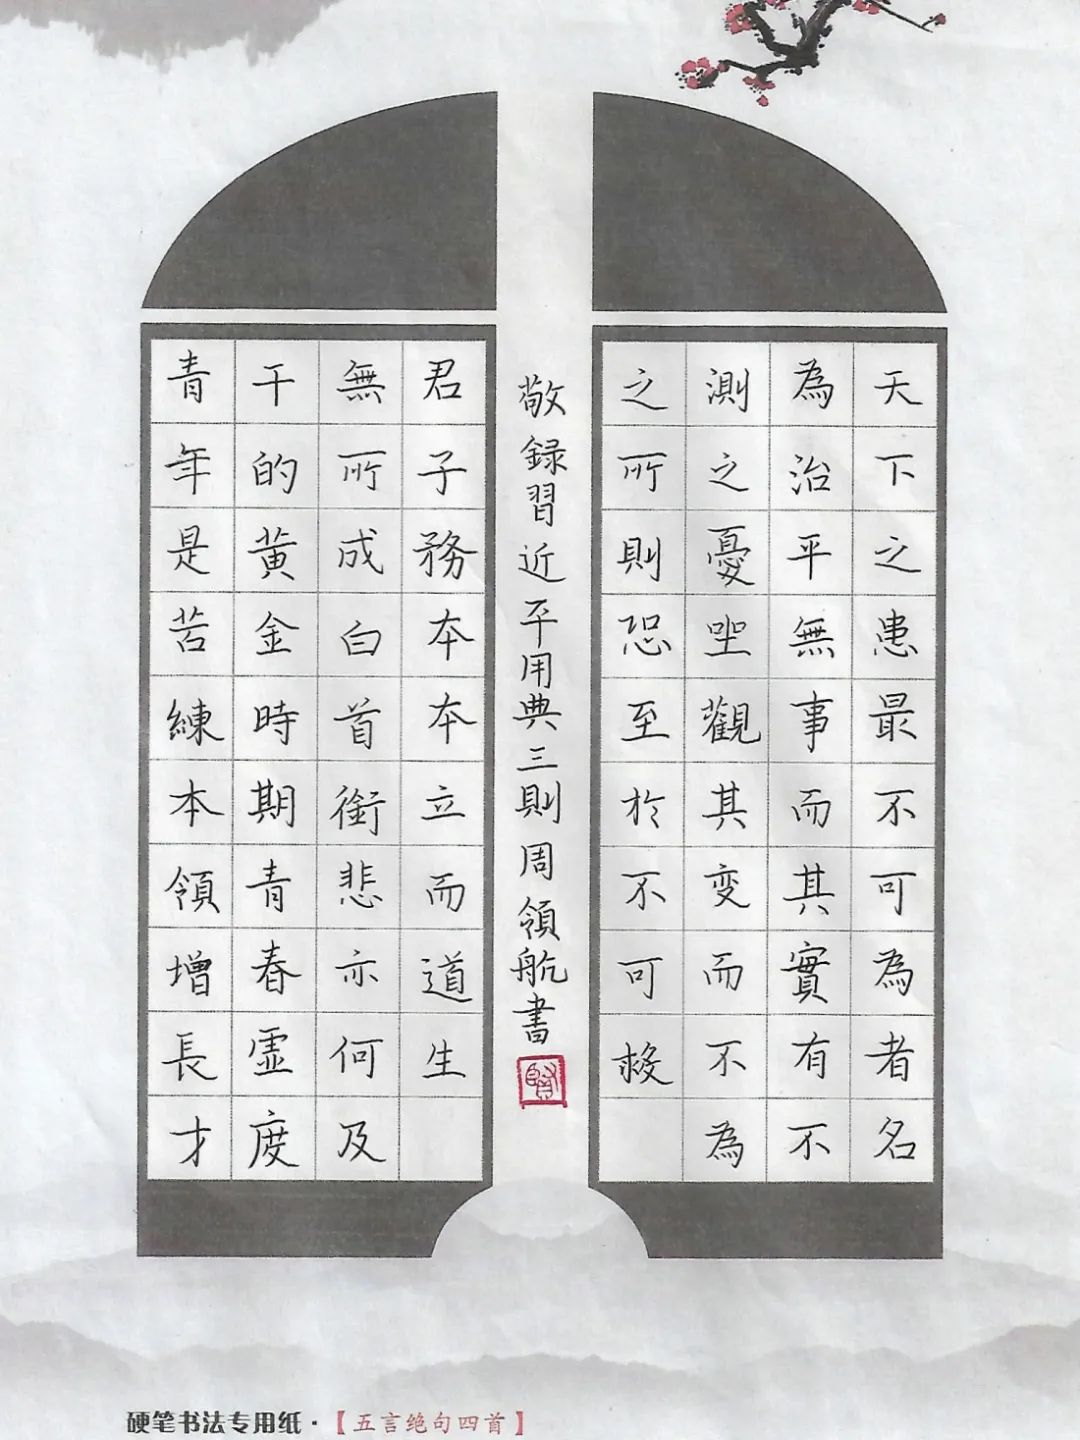 天下之患最不可為者名
為治平無事而其實有不
測之憂坐觀其变而不為
之所則恐至於不可救
敬録習近平用典三則周領航書
賢
君子務本本立而道生
無所成白首銜悲亦何及
干的黄金時期青春虚度
青年是苦練本領增長才
硬笔书法专用纸·【五言绝句四首】